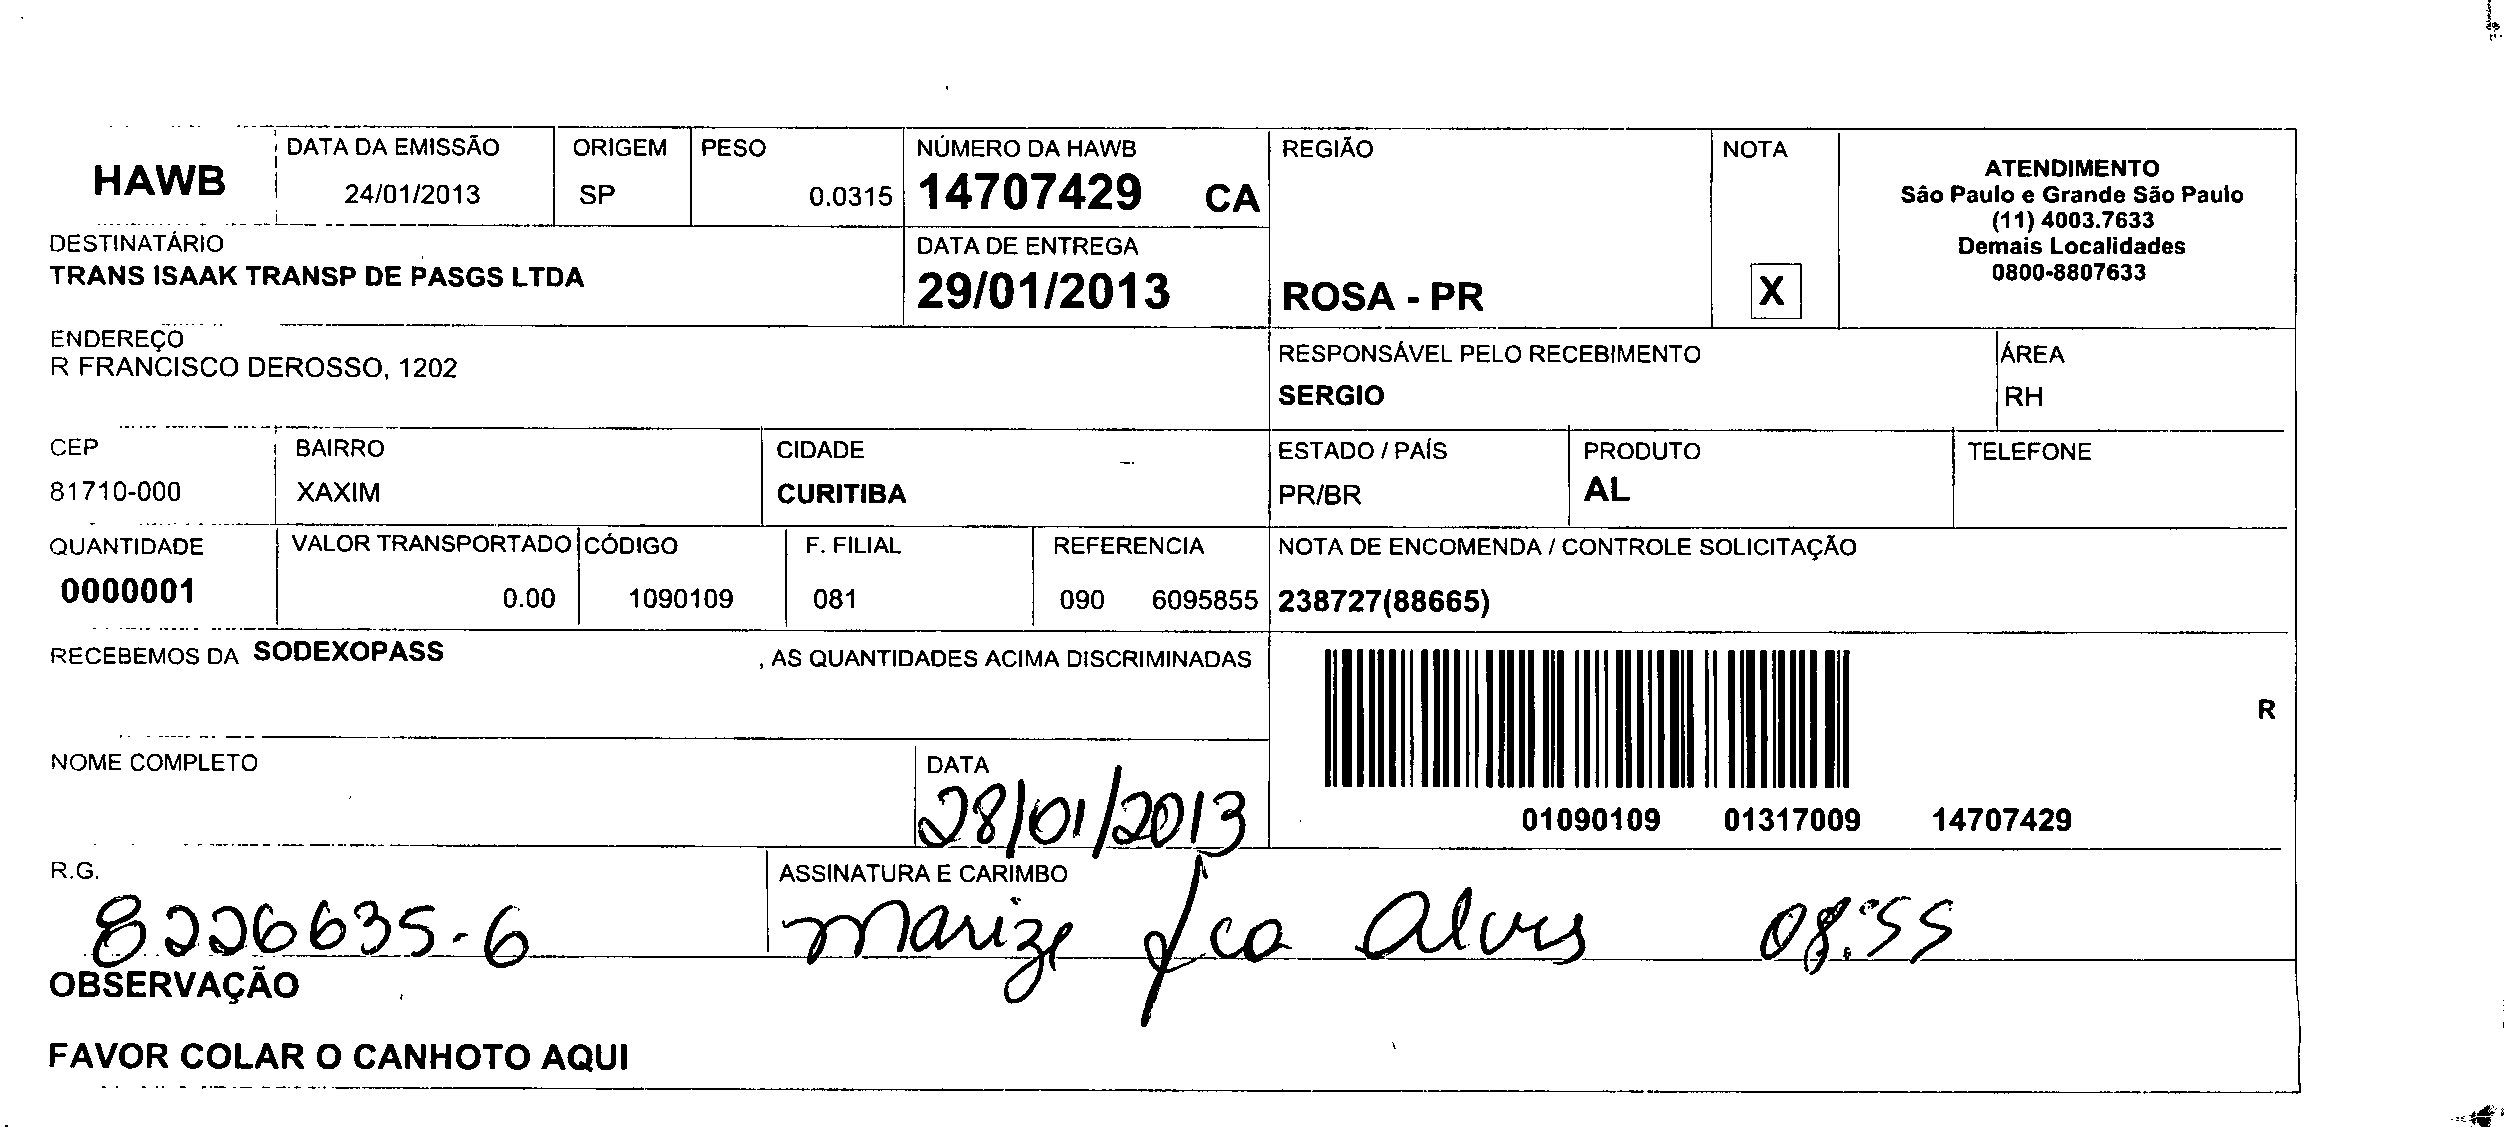 HAWB
DATA DA EMISSÃO
24/01/2013
ORIGEM
SP
PESO
0.0315
NÚMERO DA HAWB
14707429 CA
REGIÃO
ROSA - PR
NOTA
X
ATENDIMENTO
São Paulo e Grande São Paulo
(11) 4003.7633
Demais Localidades
0800-8807633
DESTINATÁRIO
TRANS ISAAK TRANSP DE PASGS LTDA
DATA DE ENTREGA
29/01/2013
ENDEREÇO
R FRANCISCO DEROSSO, 1202
RESPONSÁVEL PELO RECEBIMENTO
SERGIO
ÁREA
RH
CEP
81710-000
BAIRRO
XAXIM
CIDADE
CURITIBA
ESTADO / PAÍS
PR/BR
PRODUTO
AL
TELEFONE
QUANTIDADE
0000001
VALOR TRANSPORTADO
0.00
CÓDIGO
1090109
F. FILIAL
081
REFERENCIA
090 6095855
NOTA DE ENCOMENDA / CONTROLE SOLICITAÇÃO
238727(88665)
RECEBEMOS DA SODEXOPASS , AS QUANTIDADES ACIMA DISCRIMINADAS
R
01090109 01317009 14707429
NOME COMPLETO
DATA
28/01/2013
R.G.
8226635-6
ASSINATURA E CARIMBO
Marize Fca Alves 08:55
OBSERVAÇÃO
FAVOR COLAR O CANHOTO AQUI